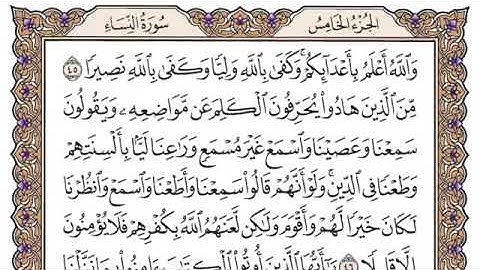 الجزء الخامس سورة النساء
وَاللَّهُ أَعْلَمُ بِأَعْدَائِكُمْ ۚ وَكَفَىٰ بِاللَّهِ وَلِيًّا وَكَفَىٰ بِاللَّهِ نَصِيرًا ٤٥
مِّنَ الَّذِينَ هَادُوا يُحَرِّفُونَ الْكَلِمَ عَن مَّوَاضِعِهِ وَيَقُولُونَ
سَمِعْنَا وَعَصَيْنَا وَاسْمَعْ غَيْرَ مُسْمَعٍ وَرَاعِنَا لَيًّا بِأَلْسِنَتِهِمْ
وَطَعْنًا فِي الدِّينِ ۚ وَلَوْ أَنَّهُمْ قَالُوا سَمِعْنَا وَأَطَعْنَا وَاسْمَعْ وَانظُرْنَا
لَكَانَ خَيْرًا لَّهُمْ وَأَقْوَمَ وَلَٰكِن لَّعَنَهُمُ اللَّهُ بِكُفْرِهِمْ فَلَا يُؤْمِنُونَ
إِلَّا قَلِيلًا ٤٦ يَا أَيُّهَا الَّذِينَ أُوتُوا الْكِتَابَ ءَامِنُوا بِمَا نَزَّلْنَا